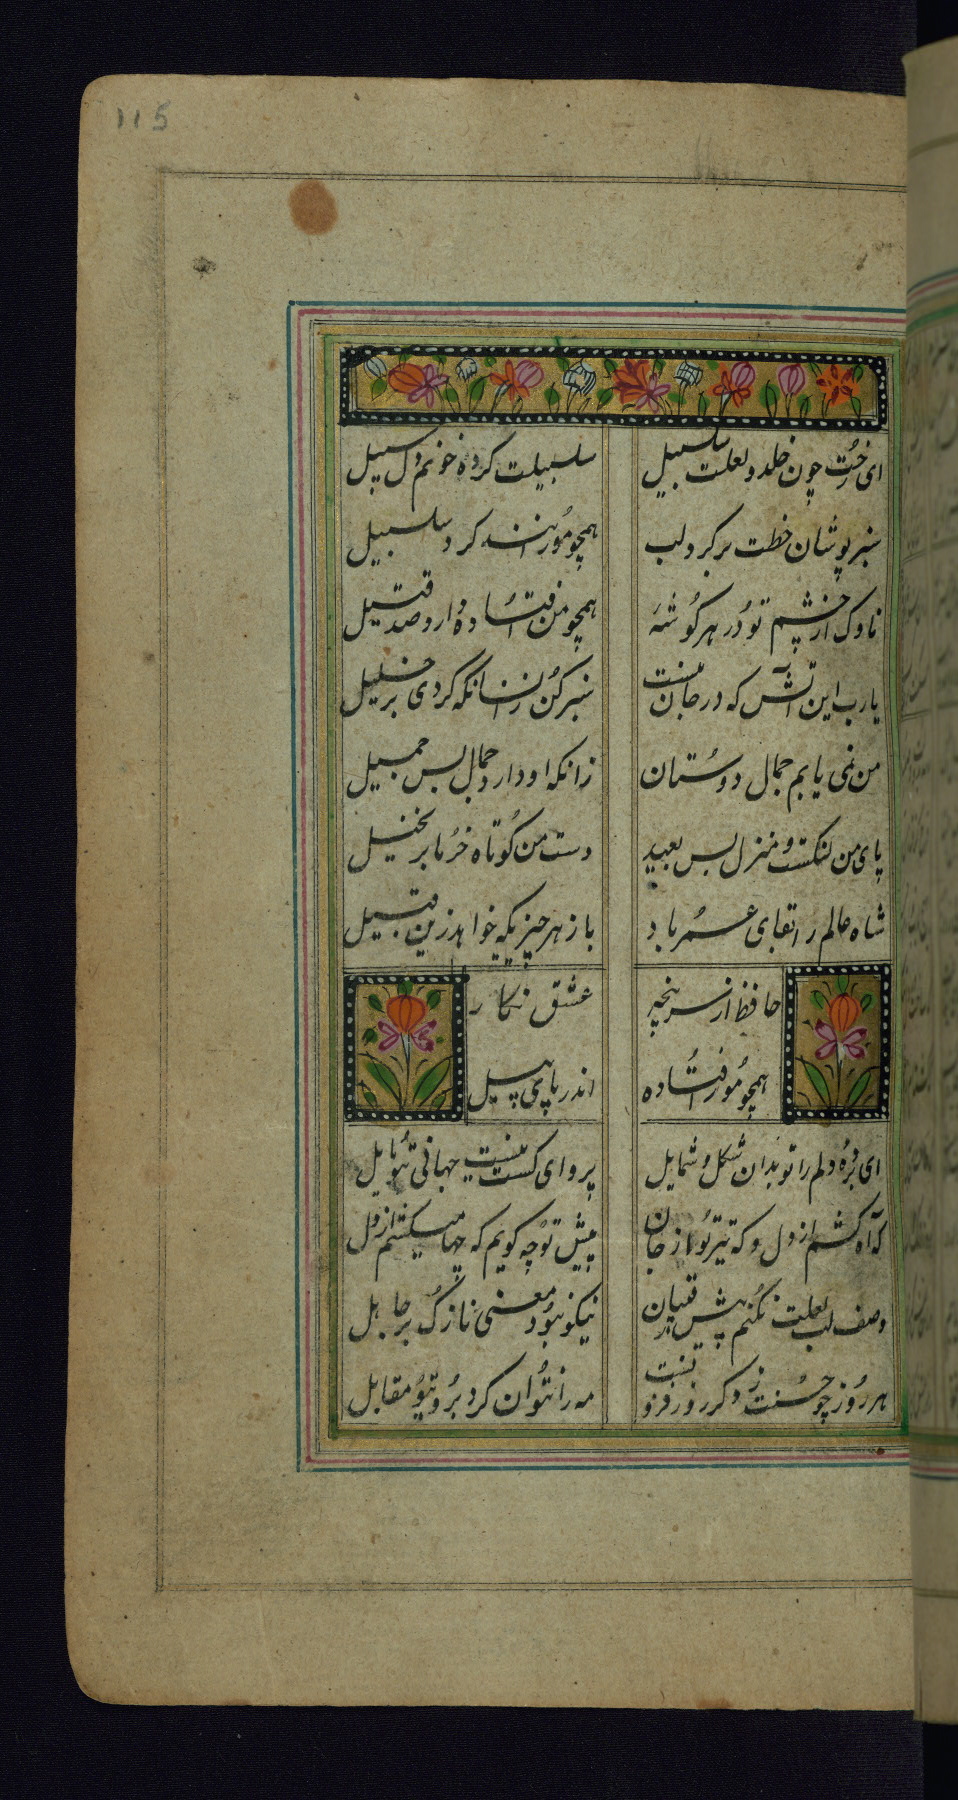 115
ای رخت چون خلد و لعلت سلسبیل
سلسبیلت کرده خونم دل سبیل
سبز پوشان خطت بر گرد لب
همچو مورانند گرد سلسبیل
ناوک از چشم تو در هر گوشهٔ
همچو من افتاده دارد صد قتیل
یا رب این آتش که در جان منست
سبز کن زانسانکه کردی بر خلیل
من نمی یابم جمال دوستان
زانکه او دارد جمال بس جمیل
پای من لنگست و منزل بس بعید
دست من کوتاه خرما بر نخیل
شاه عالم را بقای عمر باد
باز هر چیزیکه خواهد زین قبیل
حافظ از سر پنجهٔ
عشق نگار
همچو مور افتاده
اندر پای پیل
ای برده دلم را تو بدان شکل و شمایل
پروای کست نیست جهانی بتو مایل
که آه کشم از دل و که تیر تو از جان
پیش تو چه گویم که چها میکشم از دل
وصف لب لعلت نکنم پیش رقیبان
نیکو نبود معنی نازک بر جاهل
هر روز چو حسنت ز دگر روز فزونست
مه را نتوان کرد بروی تو مقابل